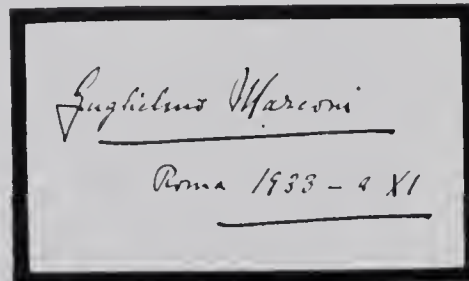 Guglielmo Marconi
Roma 1933 - a XI